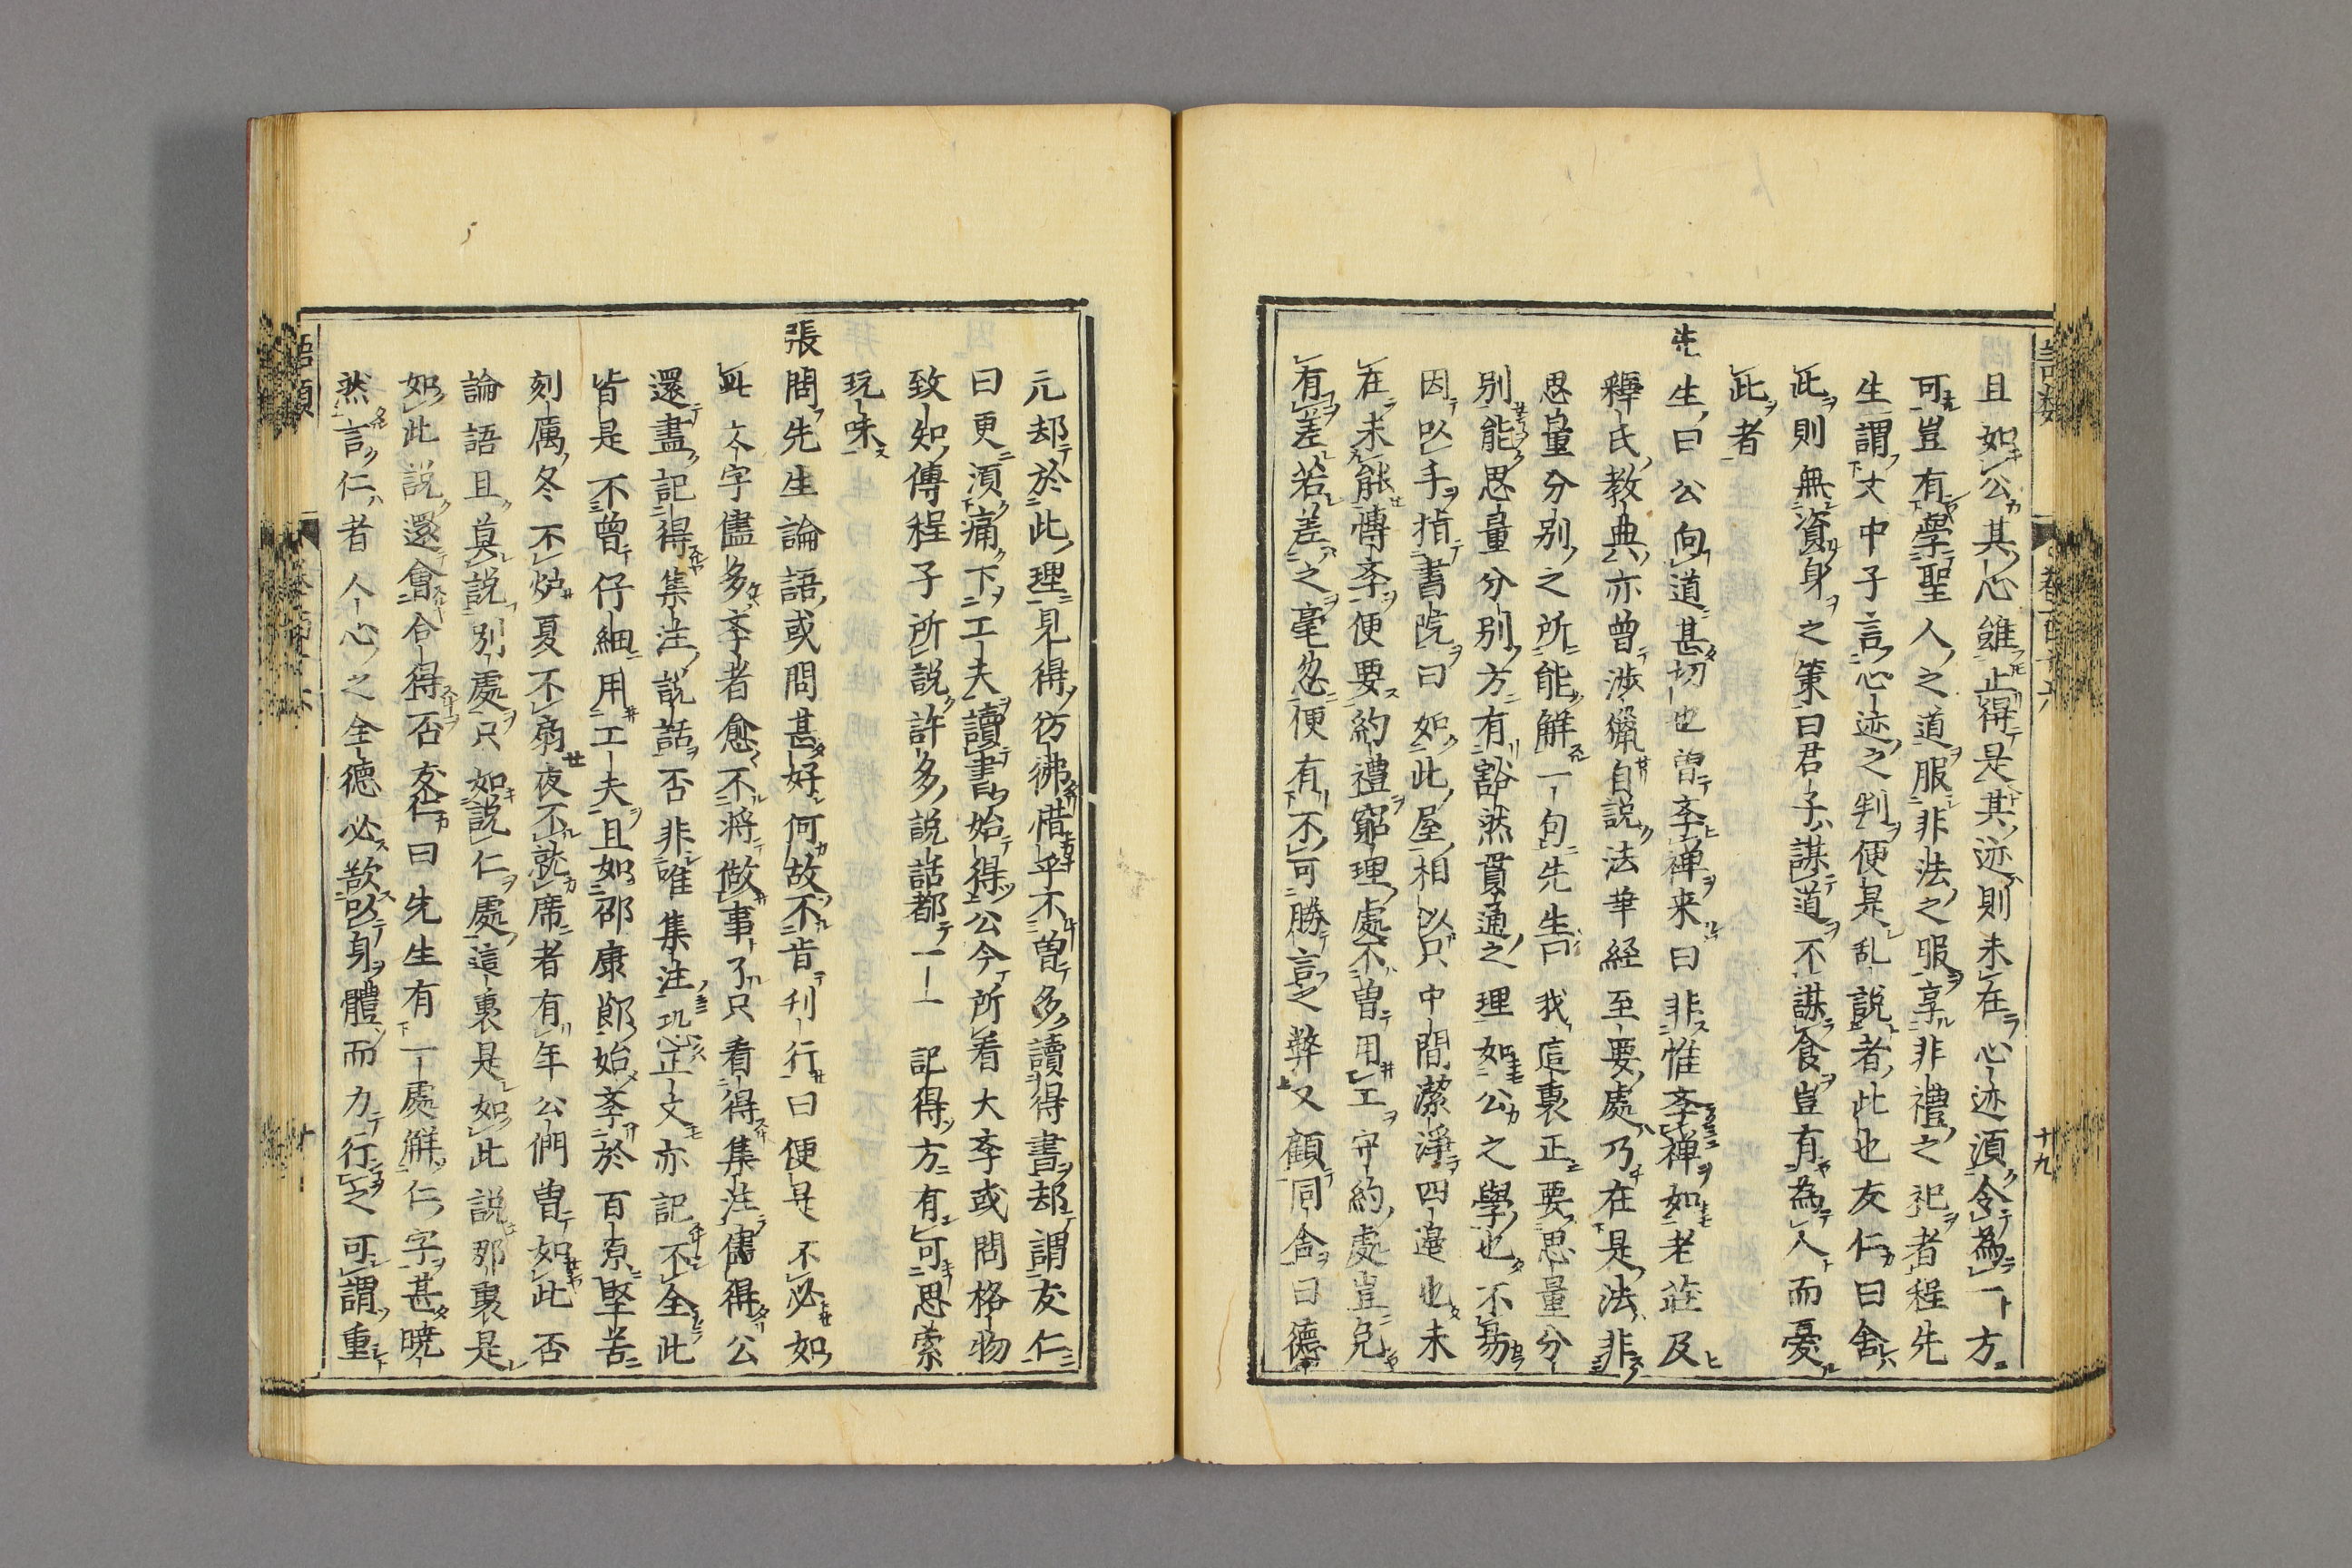 語類 卷百十六 十九
且如公其心雖止得是其迹則未在心迹須令為一方
可豈有學聖人之道服非法之服享非禮之祀者程先
生謂文中子言心迹之判便是乱說者此也友仁曰舍
此則無資身之策曰君子謀道不謀食豈有為人而憂
此者
先生曰公向道甚切也曾斈禅来曰非惟斈禅如老莊及
釋氏教典亦曾渉獵自說法華経至要處乃在是法非
思量分别之所能解一句先生曰我這裏正要思量分
别能思量分别方有豁然貫通之理如公之學也不易
因以手指書院曰如此屋相似只中間潔淨四邉也未
在未能博斈便要約禮窮理處不曽用工守約處豈免
有差若差之毫忽便有不可勝言之弊又顧同舎曰德
元却於此理見得彷彿惜乎不曽多讀得書却謂友仁
曰更湏痛下工夫讀書始得公今所看大斈或問格物
致知傳程子所說許多說話都一一記得方有可思索
玩味
張問先生論語或問甚好何故不肯刋行曰便是不必如
此文字儘多斈者愈不將做事了只看得集注儘得公
還盡記得集注說話否非唯集注恐正文亦記不全此
皆是不曽仔細用工夫且如邵康節始斈於百原堅苦
刻厲冬不炉夏不扇夜不就席者有年公們曽如此否
論語且莫說别處只如說仁處這裏是如此說那裏是
如此說還會合得否友仁曰先生有一處解仁字甚暁
然言仁者人心之全徳必欲以身體而力行之可謂重
語類